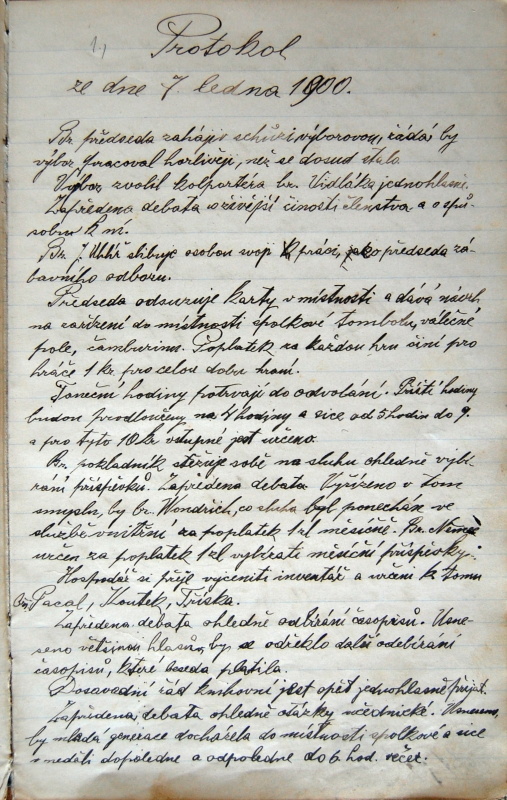 1.,
Protokol
ze dne 7 ledna 1900.
Br. předseda zahájiv schůzi výborovou, žádá by
výbor pracoval horlivěji, než se dosud stalo
Výbor zvolil kolportéra br. Vidláka jednohlasně.
Zapředena debata o živější činosti členstva a o spů-
sobu k ní.
Br. J. Uhlíř slibuje osobou svojí k práci, jako předseda zá-
bavního odboru.
Předseda odsuzuje karty v místnosti a dává návrh
na zařízení do místnosti spolkové tombolu, válečné
pole, čamburinu. Poplatek za každou hru činí pro
hráče 1 kr pro celou dobu hraní.
Taneční hodiny potrvají do odvolání. Příští hodiny
budou prodlouženy na 4 hodiny a sice od 5 hodin do 9.
a pro tyto 10 kr vstupné jest určeno.
Br. pokladník stěžuje sobě na sluhu ohledně vybí-
rání příspěvků. Zapředena debata. Vyřízeno v tom
smyslu, by br. Wondřich, co sluha byl ponechán ve
službě vnitřní za poplatek 1 zl měsíčně. Br. Němec
určen za poplatek 1 zl vybírati měsíční příspěvky.
Hospodář si přeje vyceniti inventář a určeni k tomu
Br. Pacal, Koutek, Tříska.
Zapředena debata ohledně odbírání časopisů. Usne-
seno většinou hlasů, by se odřeklo další odebírání
časopisů, které beseda platila.
Dosavadní řád knihovní jest opět jednohlasně přijat.
Zapředena debata ohledně otázky učednické. Usneseno,
by mladá generace docházela do místnosti spolkové a sice
v neděli dopoledne a odpoledne do 6 hod. večer.